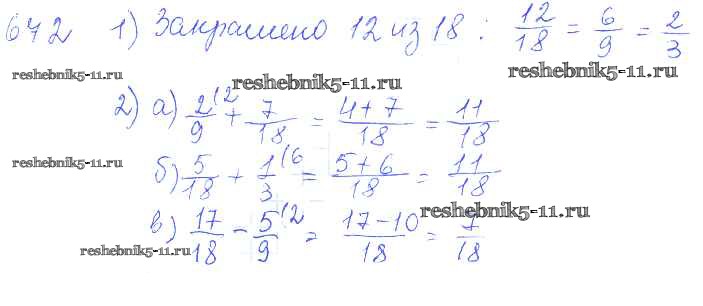 672 1) Закрашено 12 из 18 : 12/18 = 6/9 = 2/3
reshebnik5-11.ru reshebnik5-11.ru reshebnik5-11.ru
2) а) 2/9 (2 + 7/18 = 4+7/18 = 11/18
reshebnik5-11.ru
б) 5/18 + 1/3 (6 = 5+6/18 = 11/18
reshebnik5-11.ru
в) 17/18 - 5/9 (2 = 17-10/18 = 7/18
reshebnik5-11.ru